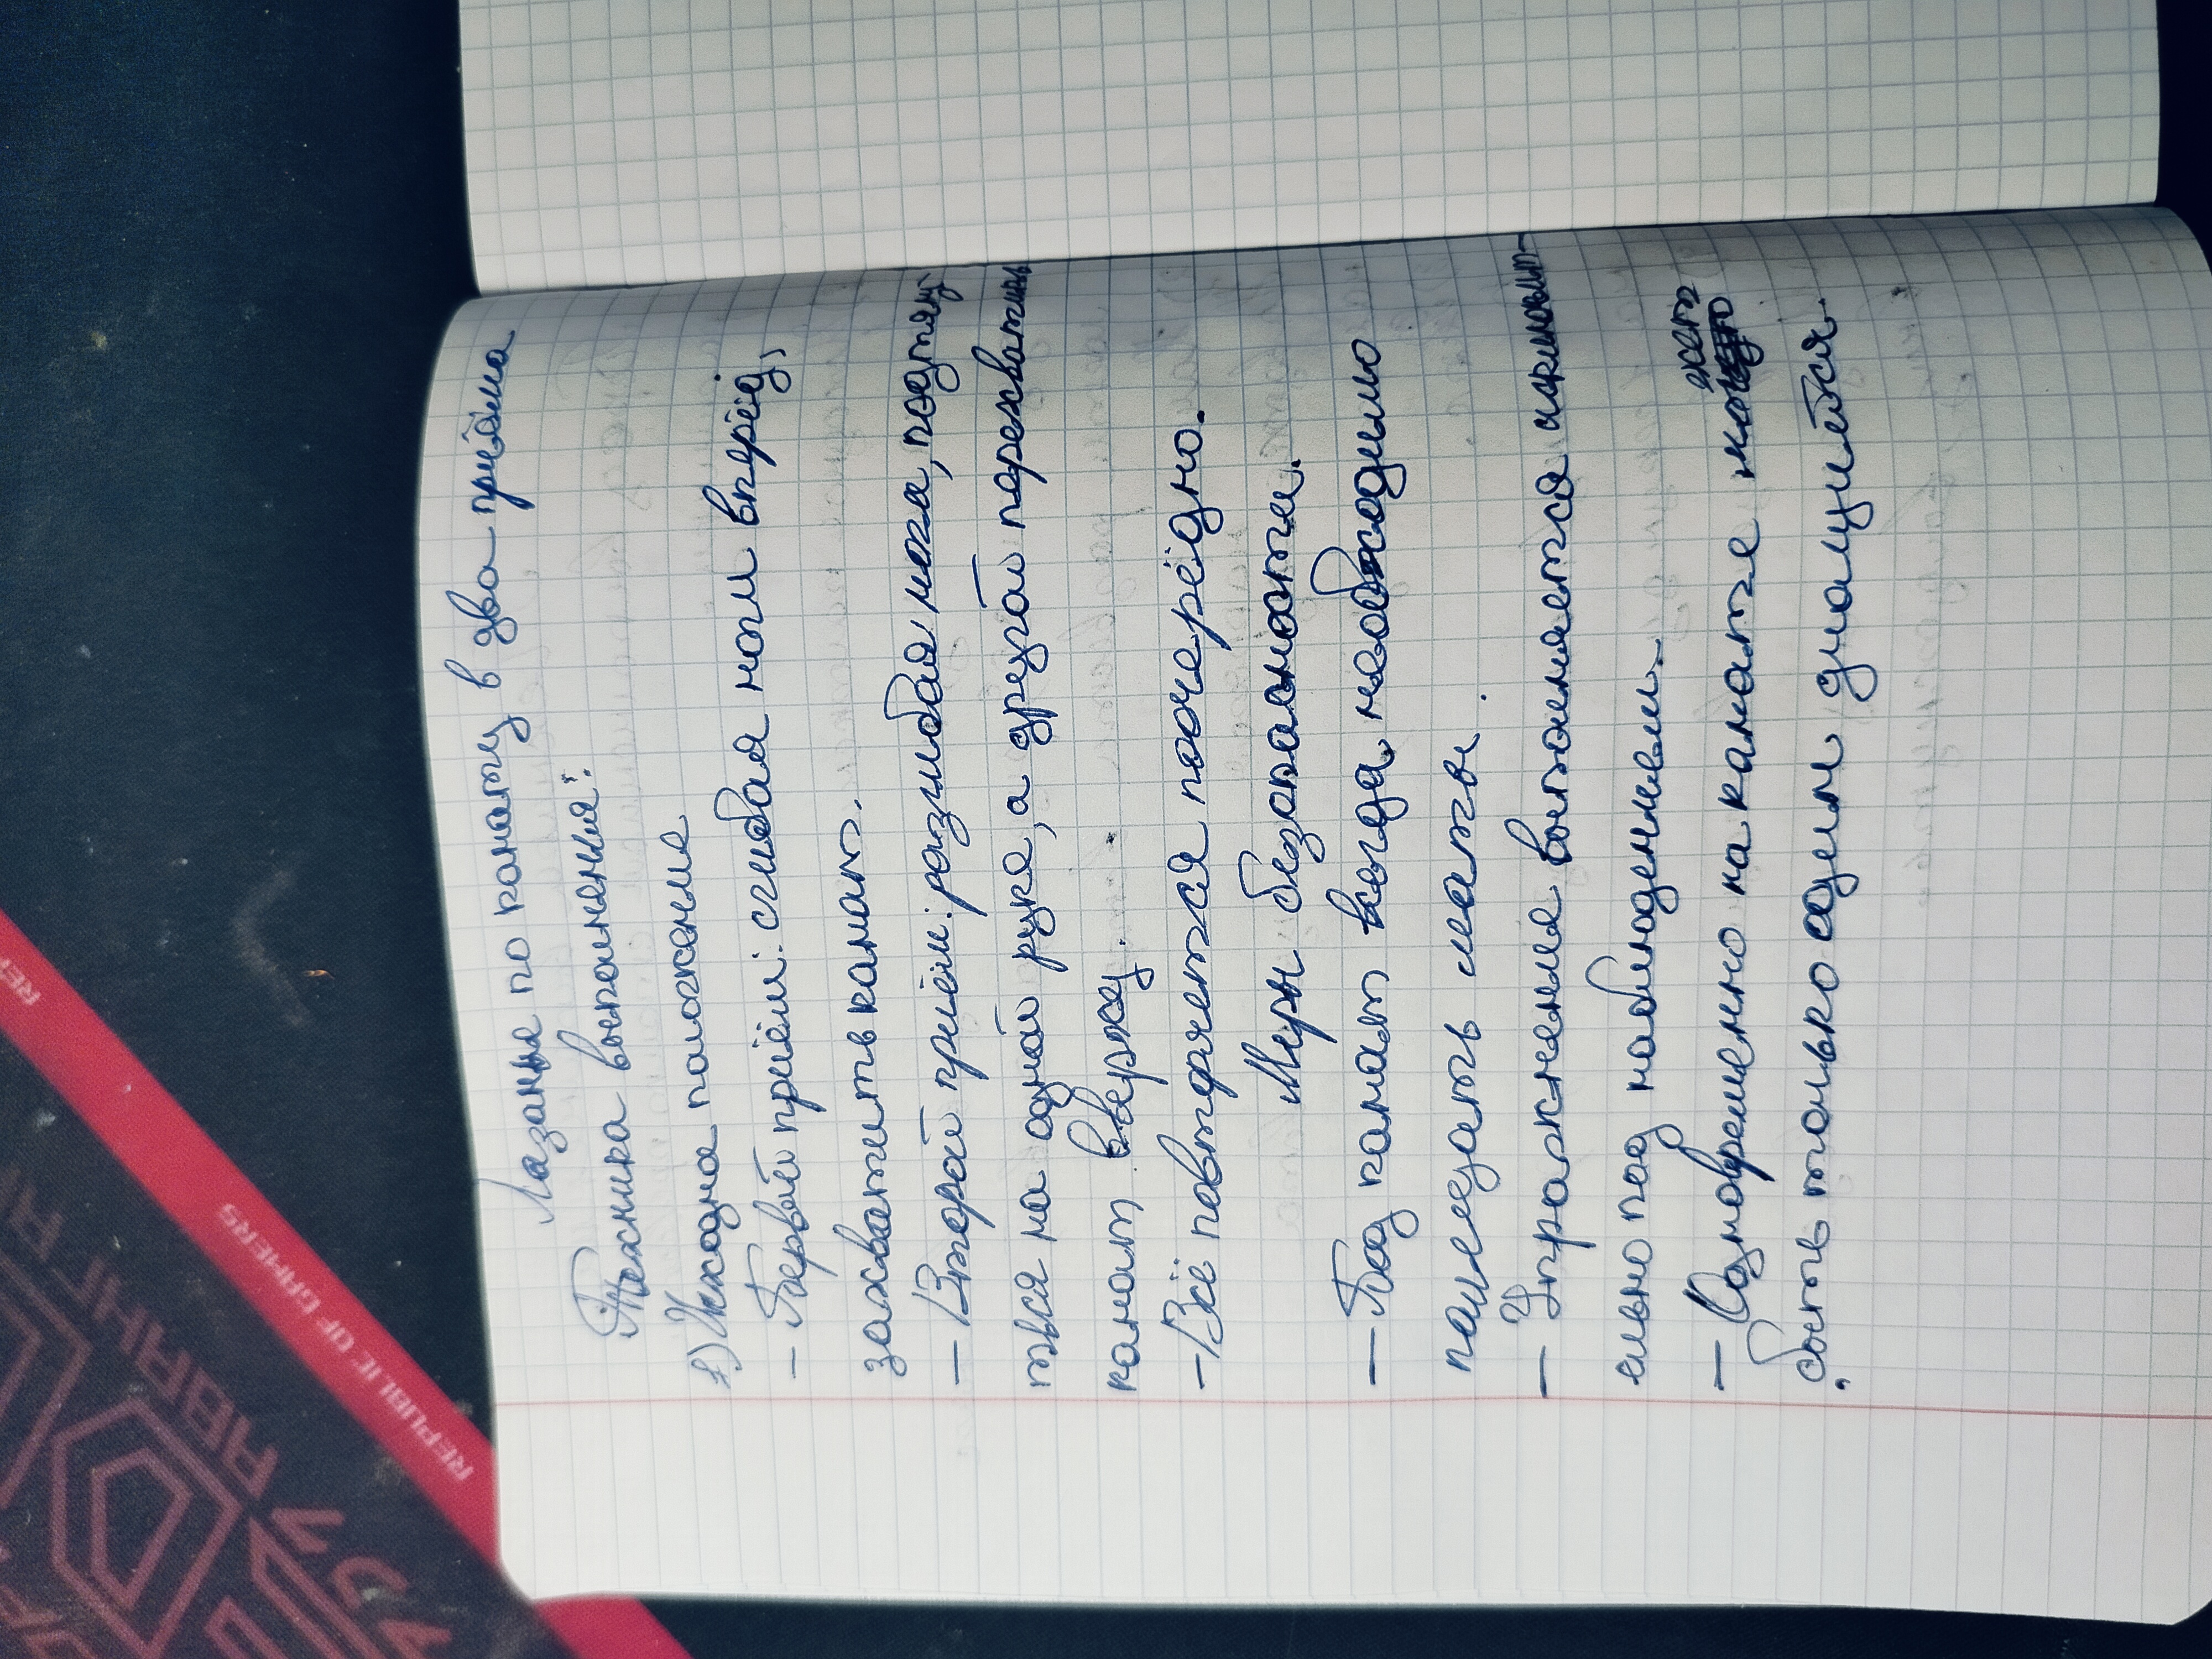 Лазанье по канату в два приёма
Техника выполнения:
1) Исходне положение
- Первый приём: сгибая ноги вперёд,
захватить канат.
- Второй приём: разгибая нога, подтяну
ться на одной руке, а другой перехватить
канат вверху.
- Всё повторяется поочерёдно.
Меры безопасности.
- Под канат всегда необходимо
помещать маты.
- Упражнение выполняется исключит-
ельно под наблюдением.
- Одновременно на канате может
быть только один учащийся.
REPUBLIC OF GAMERS